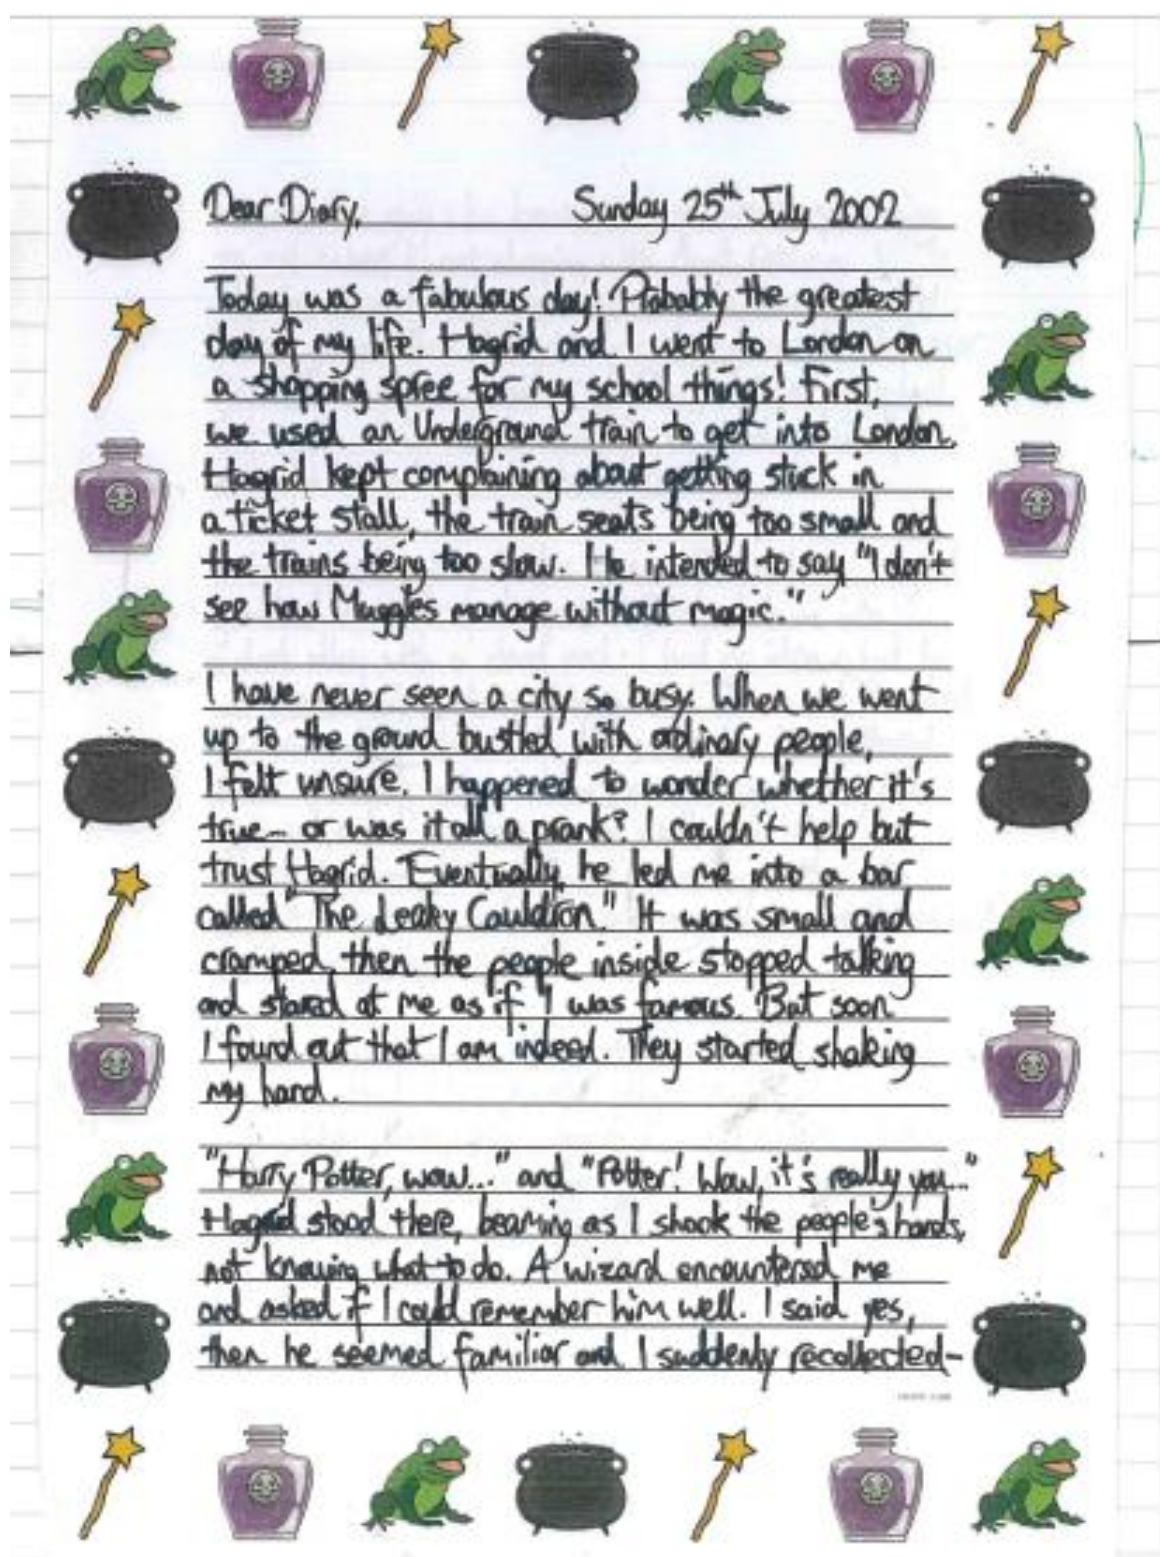 Dear Diary, Sunday 25th July 2002
Today was a fabulous day! Probably the greatest
day of my life. Hagrid and I went to London on
a shopping spree for my school things! First,
we used an Underground train to get into London.
Hagrid kept complaining about getting stuck in
a ticket stall, the train seats being too small and
the trains being too slow. He intended to say "I don't
see how Muggles manage without magic."
I have never seen a city so busy. When we went
up to the ground bustled with ordinary people,
I felt unsure. I happened to wonder whether it's
true - or was it all a prank? I couldn't help but
trust Hagrid. Eventually, he led me into a bar
called "The Leaky Cauldron." It was small and
cramped, then the people inside stopped talking
and stared at me as if I was famous. But soon
I found out that I am indeed. They started shaking
my hand.
"Harry Potter, wow..." and "Potter! Wow, it's really you..."
Hagrid stood there, beaming as I shook the people's hands,
not knowing what to do. A wizard encountered me
and asked if I could remember him well. I said yes,
then he seemed familiar and I suddenly recollected-